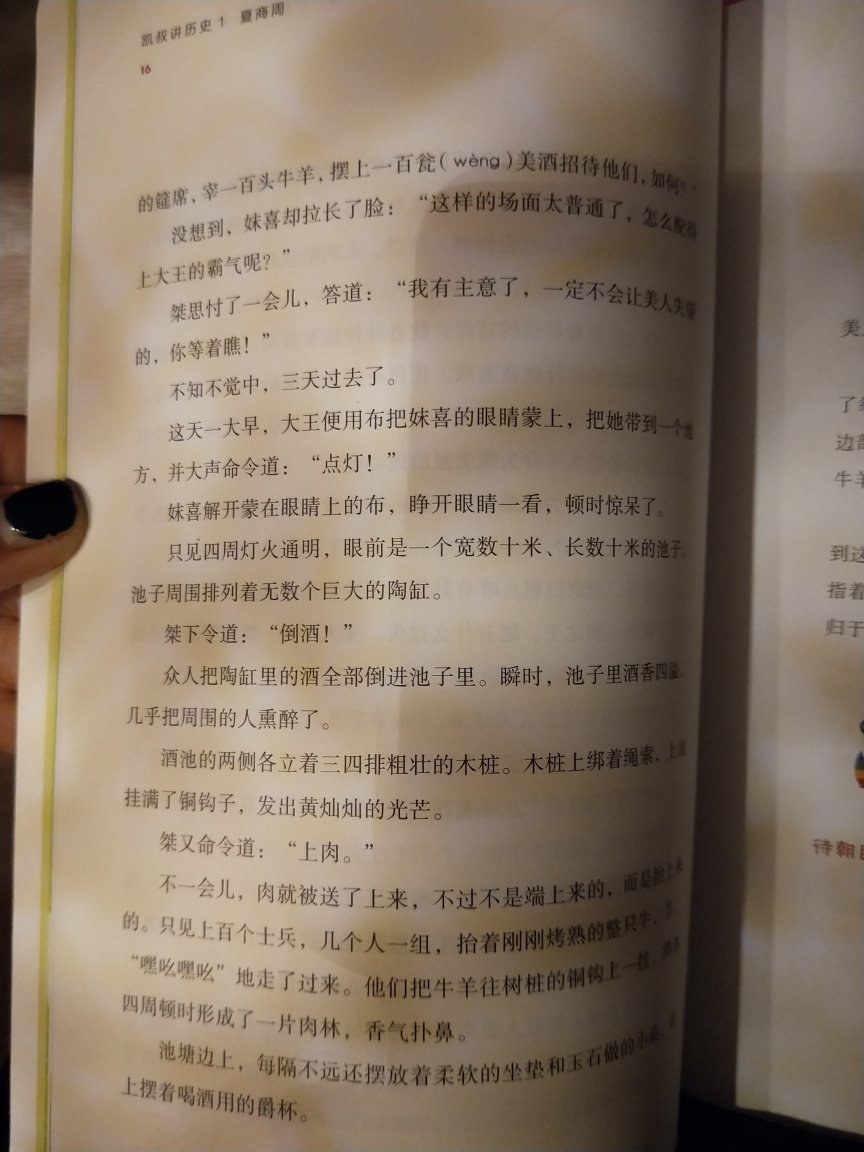 凯叔讲历史1 夏商周
16
的筵席，宰一百头牛羊，摆上一百瓮（wèng）美酒招待他们，如何？”
没想到，妹喜却拉长了脸：“这样的场面太普通了，怎么配得
上大王的霸气呢？”
桀思忖了一会儿，答道：“我有主意了，一定不会让美人失望
的，你等着瞧！”
不知不觉中，三天过去了。
这天一大早，大王便用布把妹喜的眼睛蒙上，把她带到一个地
方，并大声命令道：“点灯！”
妹喜解开蒙在眼睛上的布，睁开眼睛一看，顿时惊呆了。
只见四周灯火通明，眼前是一个宽数十米、长数十米的池子。
池子周围排列着无数个巨大的陶缸。
桀下令道：“倒酒！”
众人把陶缸里的酒全部倒进池子里。瞬时，池子里酒香四溢，
几乎把周围的人熏醉了。
酒池的两侧各立着三四排粗壮的木桩。木桩上绑着绳索，上面
挂满了铜钩子，发出黄灿灿的光芒。
桀又命令道：“上肉。”
不一会儿，肉就被送了上来，不过不是端上来的，而是抬上来
的。只见上百个士兵，几个人一组，抬着刚刚烤熟的整只牛、羊，
“嘿吆嘿吆”地走了过来。他们把牛羊往树桩的铜钩上一挂，
四周顿时形成了一片肉林，香气扑鼻。
池塘边上，每隔不远还摆放着柔软的坐垫和玉石做的小桌，
上摆着喝酒用的爵杯。
美
了
边
牛羊
到这
指着
归于
待朝